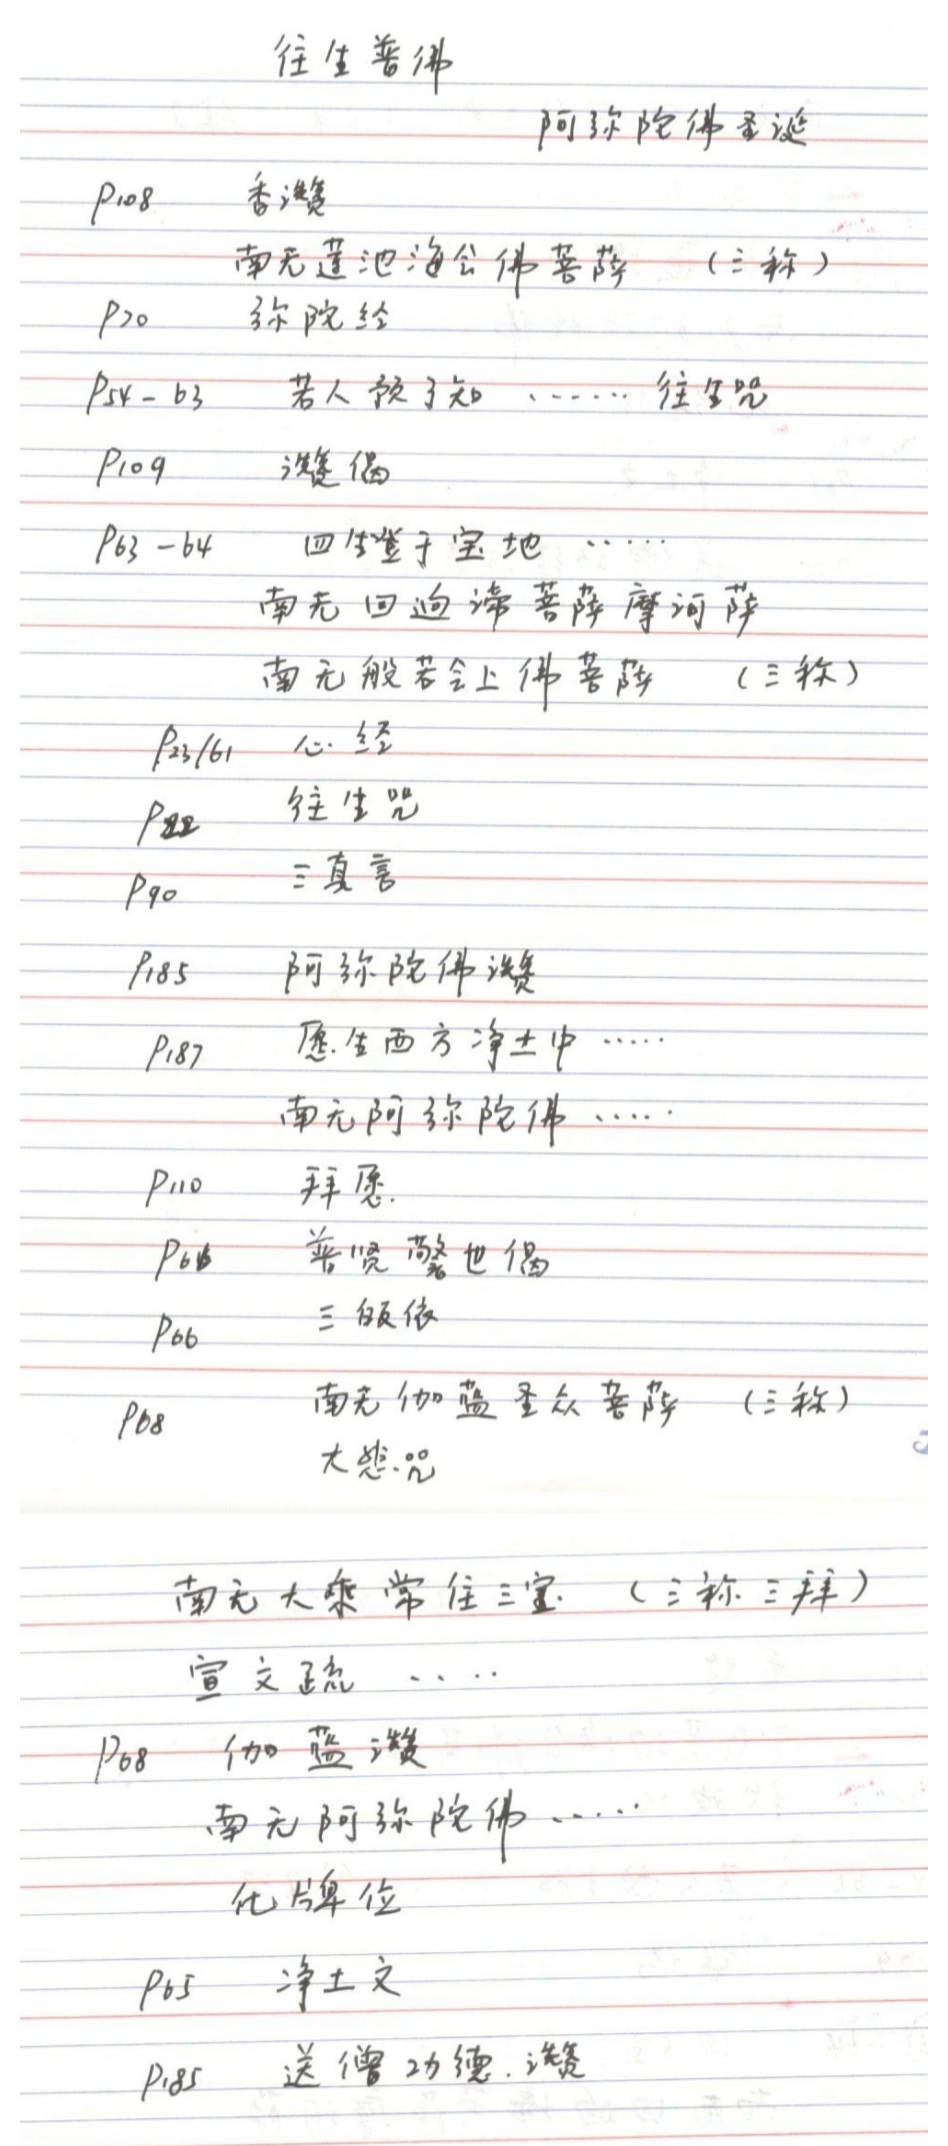 往生普佛
阿弥陀佛圣诞
P108 香讚
南无莲池海会佛菩萨 (三称)
P20 弥陀经
P54-63 若人预了知 ...... 往生咒
P109 讚偈
P63-64 四生登于宝地 .....
南无回向谛菩萨摩诃萨
南无般若会上佛菩萨 (三称)
P23/61 心经
P22 往生咒
P90 三真言
P185 阿弥陀佛讚
P187 愿生西方净土中 .....
南无阿弥陀佛 .....
P110 拜愿
P66 普贤警世偈
P66 三皈依
P68 南无伽蓝圣众菩萨 (三称)
大悲咒
南无大乘常住三宝 (三称三拜)
宣文疏 ....
P68 伽蓝讚
南无阿弥陀佛 .....
化牌位
P65 净土文
P185 送僧功德讚